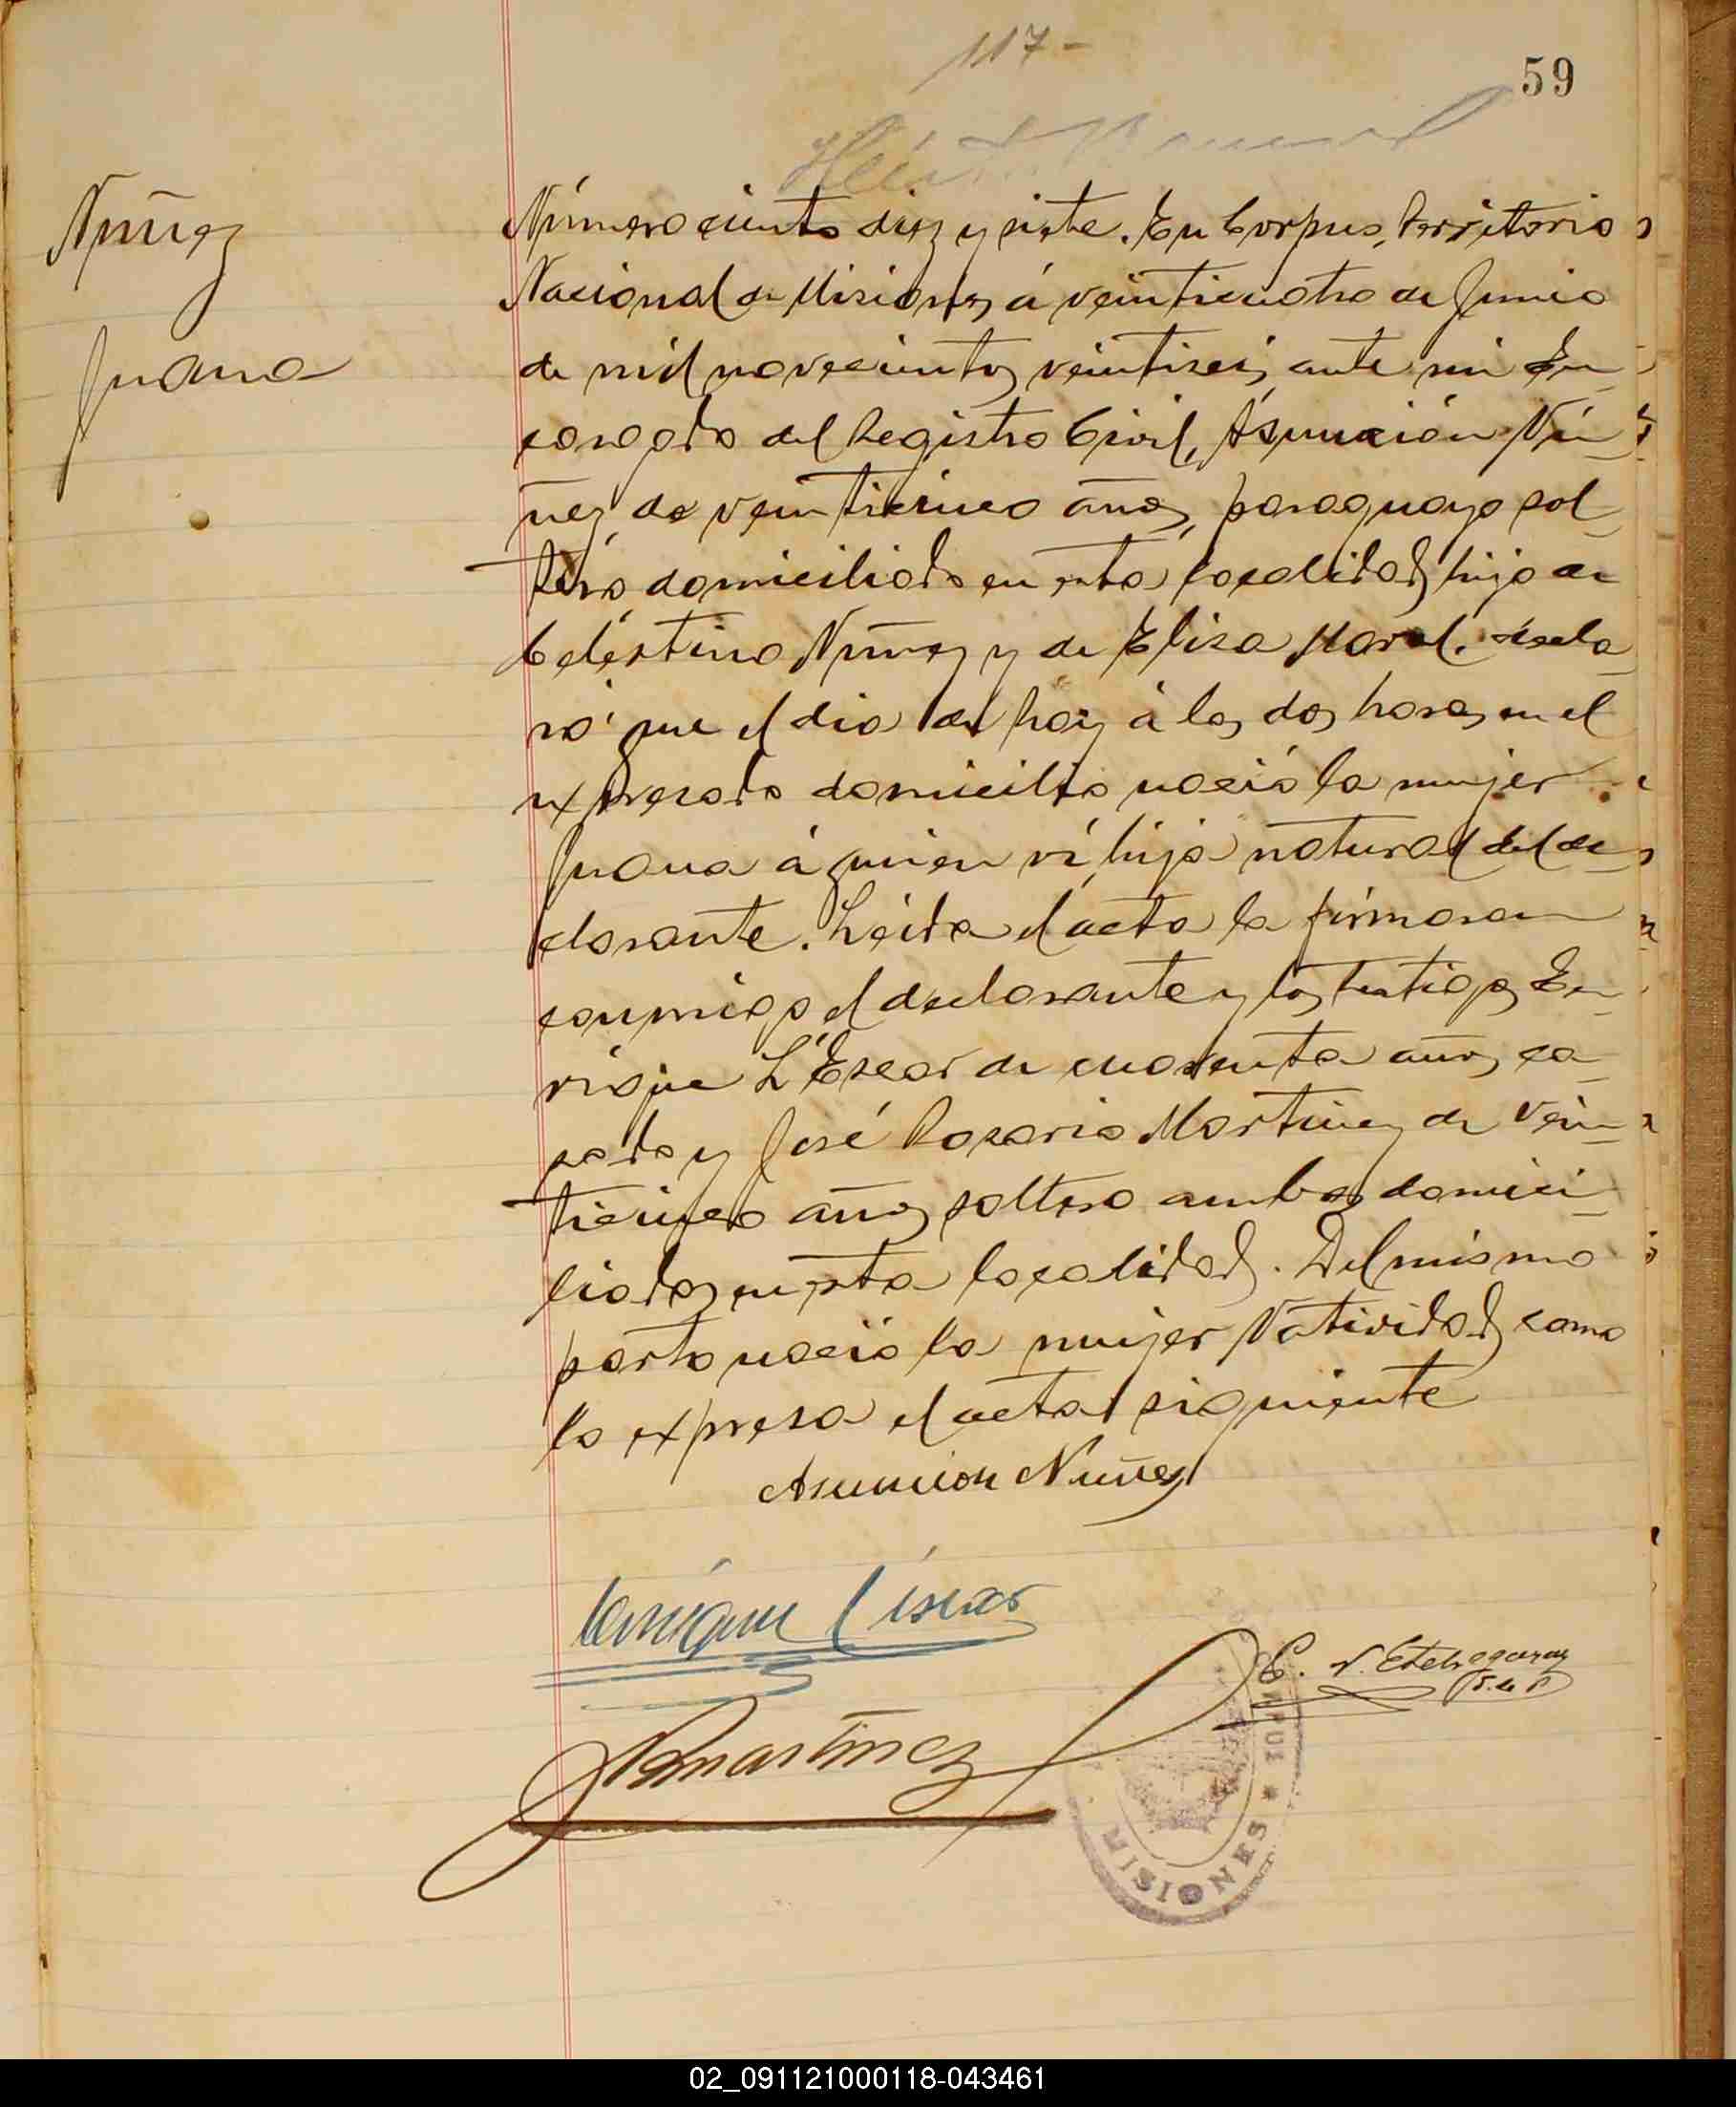 117-
59
Nuñez
Juana
Número ciento diez y siete. En Corpus, Territorio
Nacional de Misiones á veinticuatro de Junio
de mil novecientos veintiseis, ante mi En-
cargado del Registro Civil, Asunción Nú-
ñez de veinticinco años, paraguayo sol-
tero domiciliado en esta localidad, hijo de
Celestino Nuñez y de Elisa Maral. decla-
ró que el dia de hoy á las dos horas en el
expresado domicilio nació la mujer
Juana á quien ví, hija natural del de-
clarante. Leida el acta la firmaran
conmigo el declarante y los testigos En-
rique L'Escar de cuarenta años, ca-
sado y José Rosario Martinez de vein-
ticinco años, soltero ambos domici-
liados en esta localidad. Del mismo
parto nació la mujer Natividad como
lo expresa el acta siguiente
Asunción Nuñez
Enrique L'escar
Martínez
C. N. Etchegaray
CORPUS * MISIONES
02_091121000118-043461